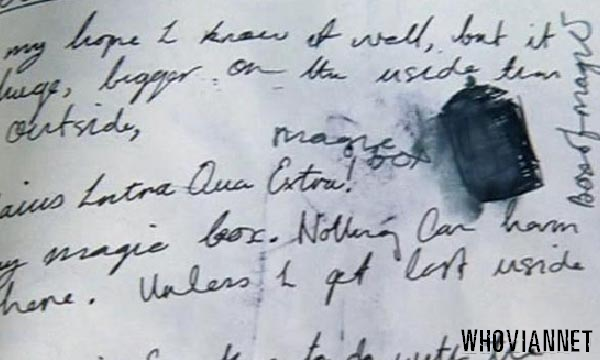 my hope I know it well, but it
huge, bigger on the inside than
outside,
magic
box
Box of magic
aius Intra Qua Extra!
my magic box. Nothing can harm
here. Unless I get lost inside
to do with
WHOVIANNET